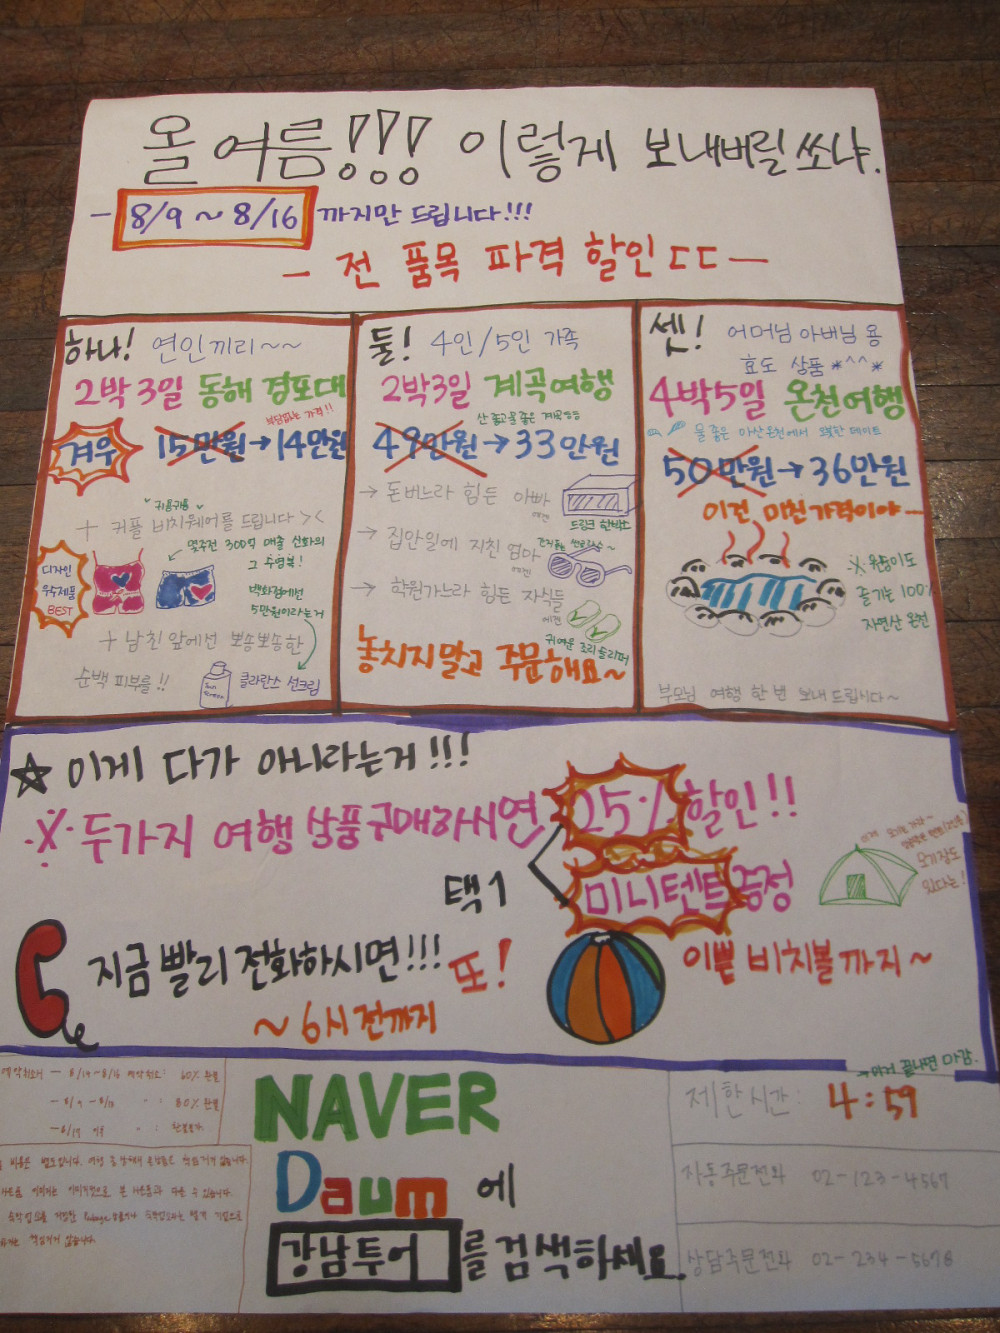 올 여름!!! 이렇게 보내버릴쏘냐.
- 8/9 ~ 8/16 까지만 드립니다!!!
- 전 품목 파격 할인 ㄷㄷ -
하나! 연인끼리~~
2박 3일 동해 경포대
부담없는 가격!!
겨우 15만원→14만원
귀욤귀욤
+ 커플 비치웨어를 드립니다 ><
몇주전 300억 매출 신화의
그 수영복!
디자인
우수제품
BEST
백화점에선
5만원이라는거
+ 남친 앞에선 뽀송뽀송한
순백 피부를!!
Sun
Screen
클라란스 선크림
둘! 4인/5인 가족
2박3일 계곡여행
산 좋고 물 좋은 계곡
49만원→33만원
→ 돈버느라 힘든 아빠
에겐
드링크 한박스
→ 집안일에 지친 엄마
에겐
→ 학원가느라 힘든 자식들
에겐
귀여운 조리슬리퍼
놓치지말고 주문해요~
셋! 어머님 아버님 용
효도 상품 *^^*
4박5일 온천여행
물 좋은 아산온천에서 오붓한 데이트
50만원→36만원
이건 미친가격이야
※ 원숭이도
즐기는 100%
자연산 온천
부모님 여행 한번 보내드립시다~
☆ 이게 다가 아니라는거!!!
※ 두가지 여행 상품구매하시면 25% 할인!!
택1
미니텐트 증정
모기장도
있다는!
지금 빨리 전화하시면!!! 또! 이쁜 비치볼까지~
~ 6시 전까지
끝나면 마감.
예약취소시 - 8/14~8/16 예약취소: 60% 환불
80% 환불
NAVER
Daum에
강남투어 를 검색하세요.
제한시간: 4:59
자동주문전화 02-123-4567
상담주문전화 02-234-5678